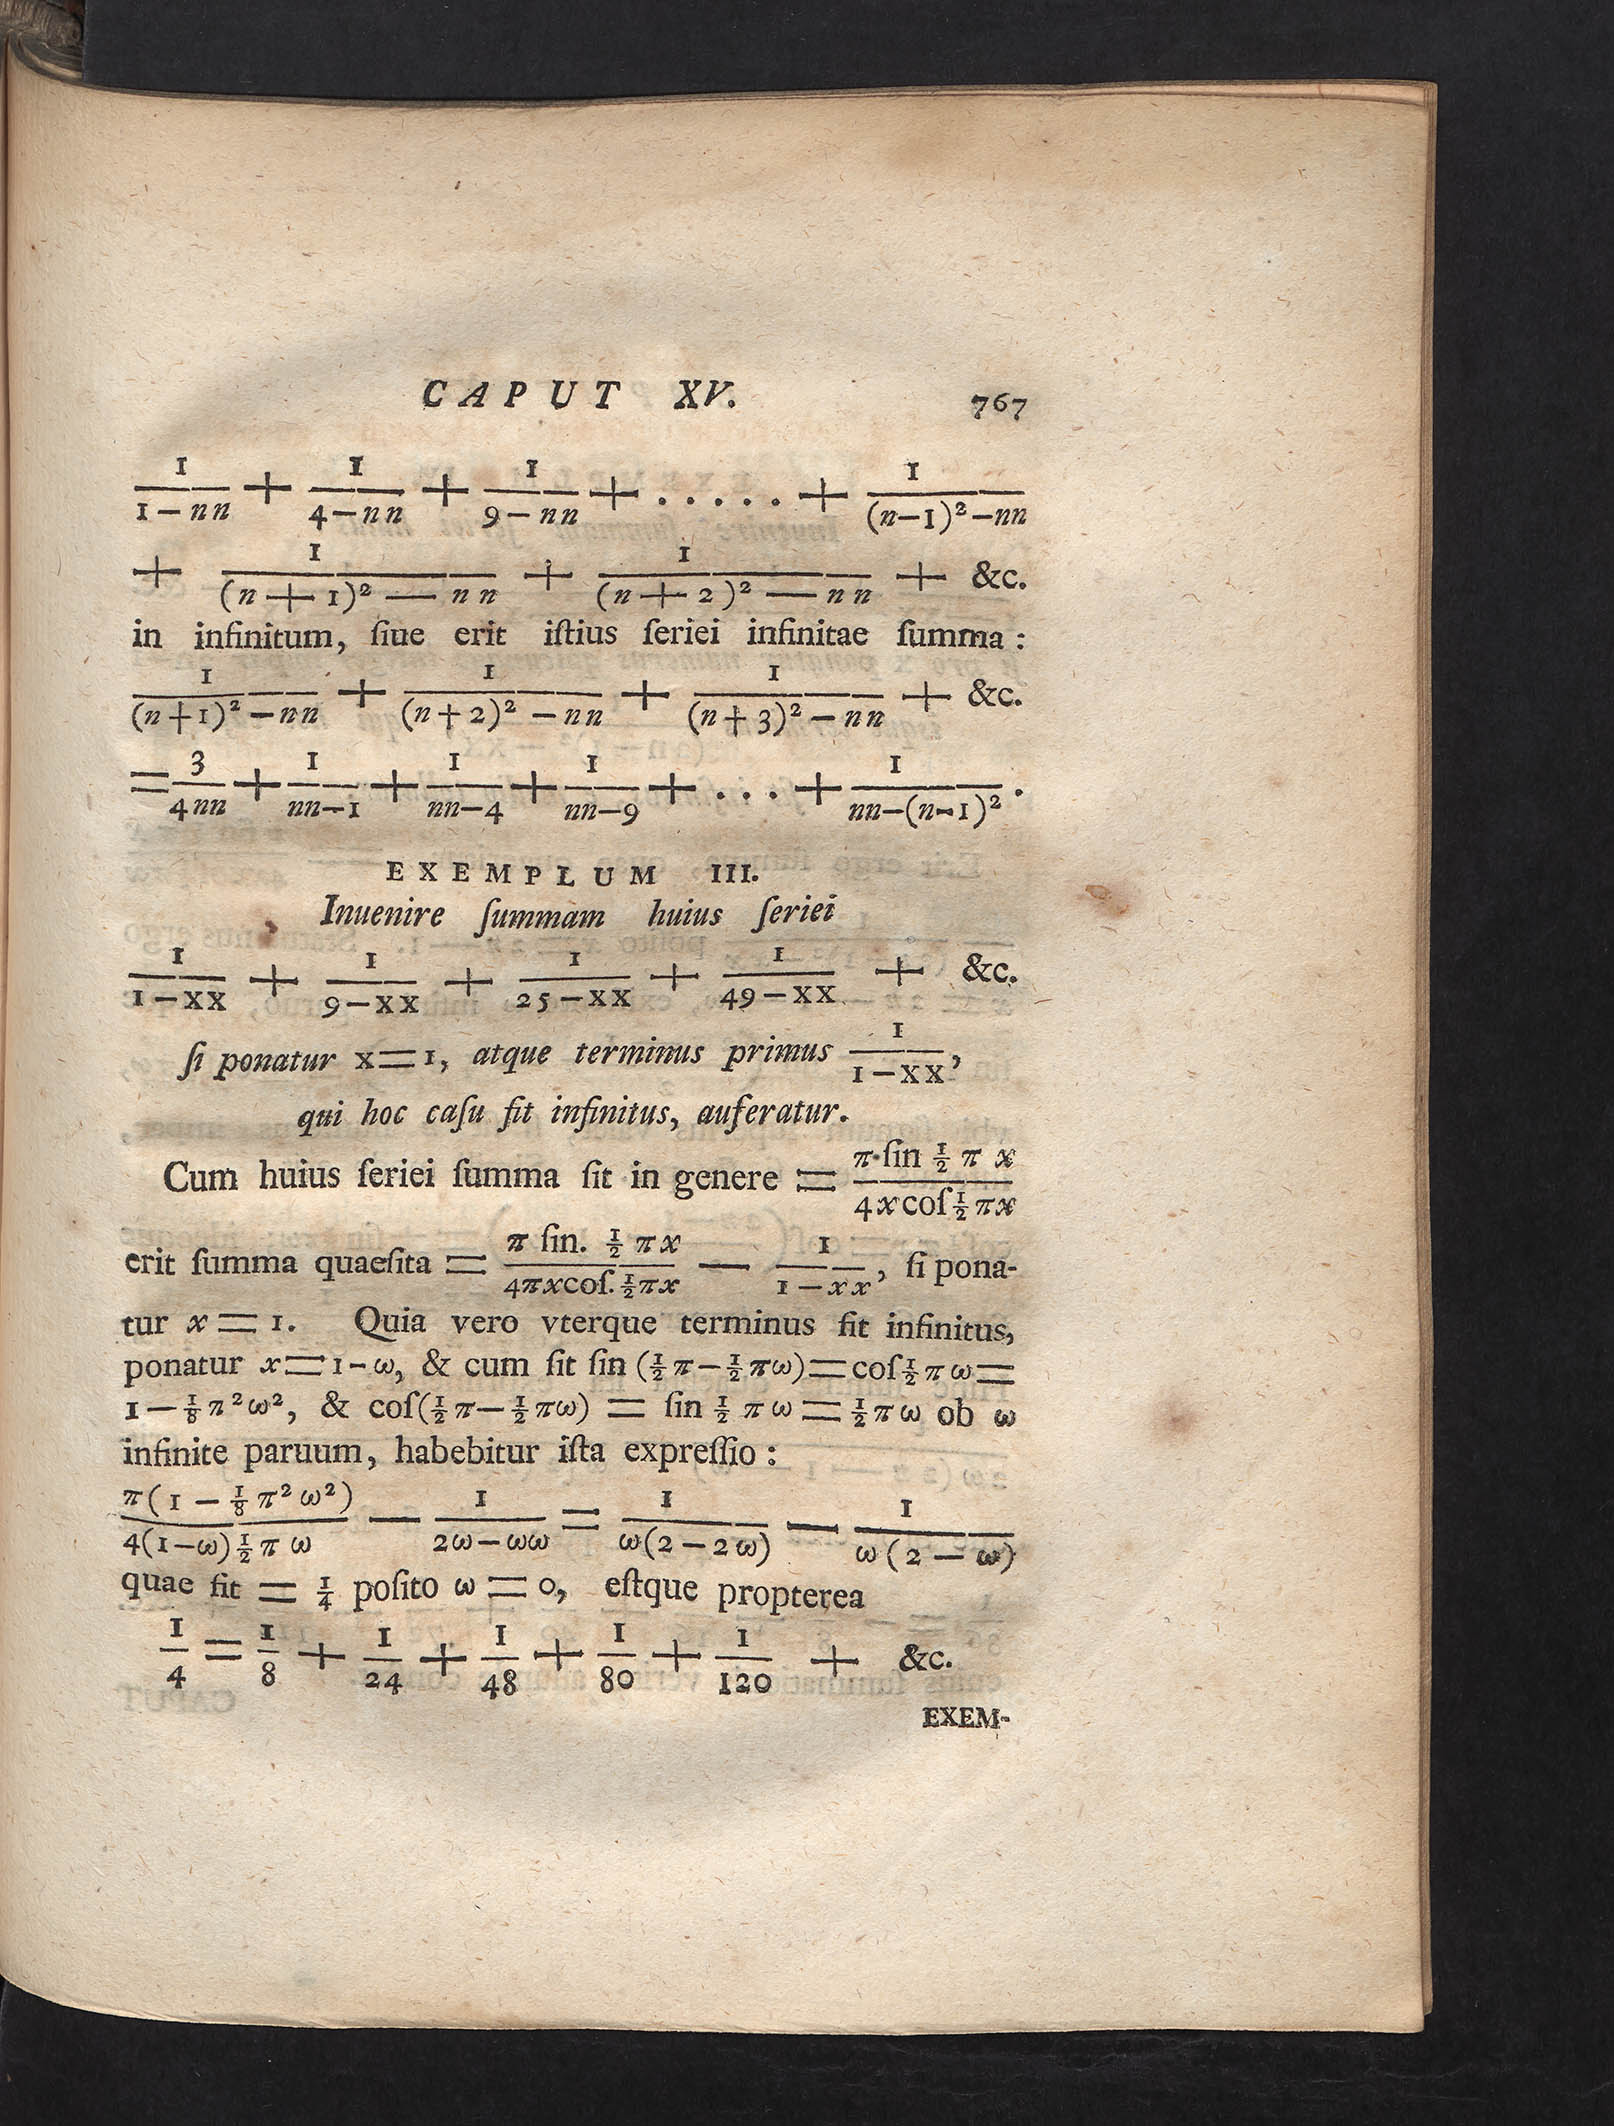 CAPUT XV. 767
1/(1−nn) + 1/(4−nn) + 1/(9−nn) + ..... + 1/((n−1)²−nn)
+ 1/((n+1)²−nn) + 1/((n+2)²−nn) + &c.
in infinitum, ſiue erit iſtius ſeriei infinitae ſumma :
1/((n+1)²−nn) + 1/((n+2)²−nn) + 1/((n+3)²−nn) + &c.
= 3/(4nn) + 1/(nn−1) + 1/(nn−4) + 1/(nn−9) + ... + 1/(nn−(n−1)²) .
EXEMPLUM III.
Inuenire ſummam huius ſeriei
1/(1−XX) + 1/(9−XX) + 1/(25−XX) + 1/(49−XX) + &c.
ſi ponatur x=1, atque terminus primus 1/(1−XX),
qui hoc caſu fit infinitus, auferatur.
Cum huius ſeriei ſumma ſit in genere = π·ſin ½ π x / 4xcoſ½πx
erit ſumma quaeſita = π ſin. ½ πx / 4πxcoſ.½πx − 1/(1−xx), ſi pona-
tur x=1. Quia vero vterque terminus fit infinitus,
ponatur x=1-ω, & cum ſit ſin (½π−½πω)=coſ½πω=
1−⅛π²ω², & coſ(½π−½πω) = ſin ½ πω=½πω ob ω
infinite paruum, habebitur iſta expreſſio :
π(1−⅛π²ω²)/4(1−ω)½πω − 1/(2ω−ωω) = 1/ω(2−2ω) − 1/ω(2−ω)
quae fit = ¼ poſito ω=0, eſtque propterea
1/4 = 1/8 + 1/24 + 1/48 + 1/80 + 1/120 + &c.
EXEM-